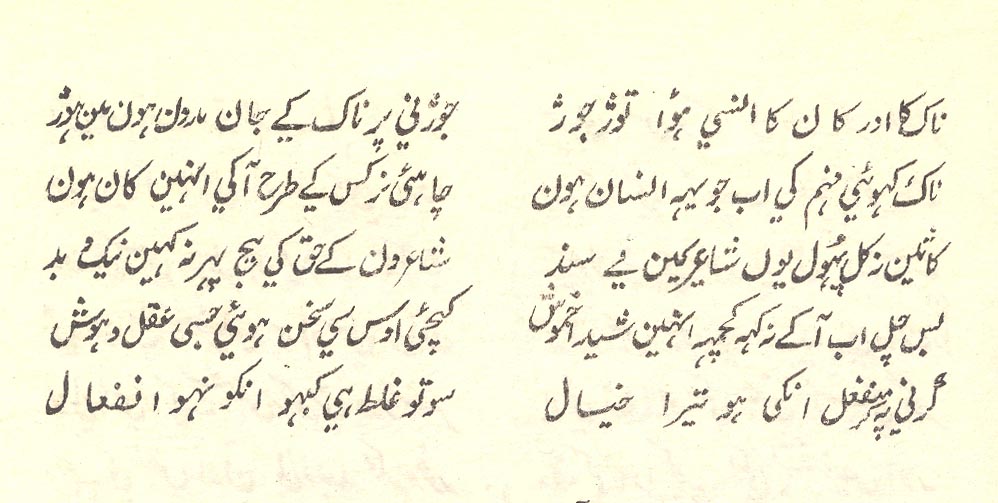 ناک کا اور کان کا النسي ہوا توڑ جوڑ جوڑني پر ناک کے جان مارون ہون مین ہوڑ
ناک کہوئیي فہم کي اب جو یہہ انسان ہون چاہئي نرکس کے طرح آکي انہین کان ہون
کاٹین نہ کل پہول یوں شاعر یمین في سند شاعرون کے حق کي بیج پہر نہ کہین نیک و بد
بس چل اب آکے نہ کہہ کچہہ انہین شیدا خموش کیجئي اوس سي سخن ہوئي جسي عقل و ہوش
گرني پہ منفعل انکی ہو تیرا خیال سو تو غلط ہي کبہو انکو نہو انفعال